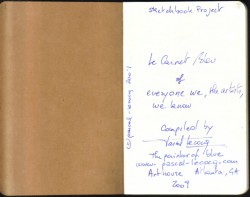 Sketchbook Project
Le Carnet Bleu
of
everyone we, the artists,
we know
Compiled by
Pascal Lecocq
The painter of blue
www.pascal-lecocq.com
Art house Atlanta, GA
2009